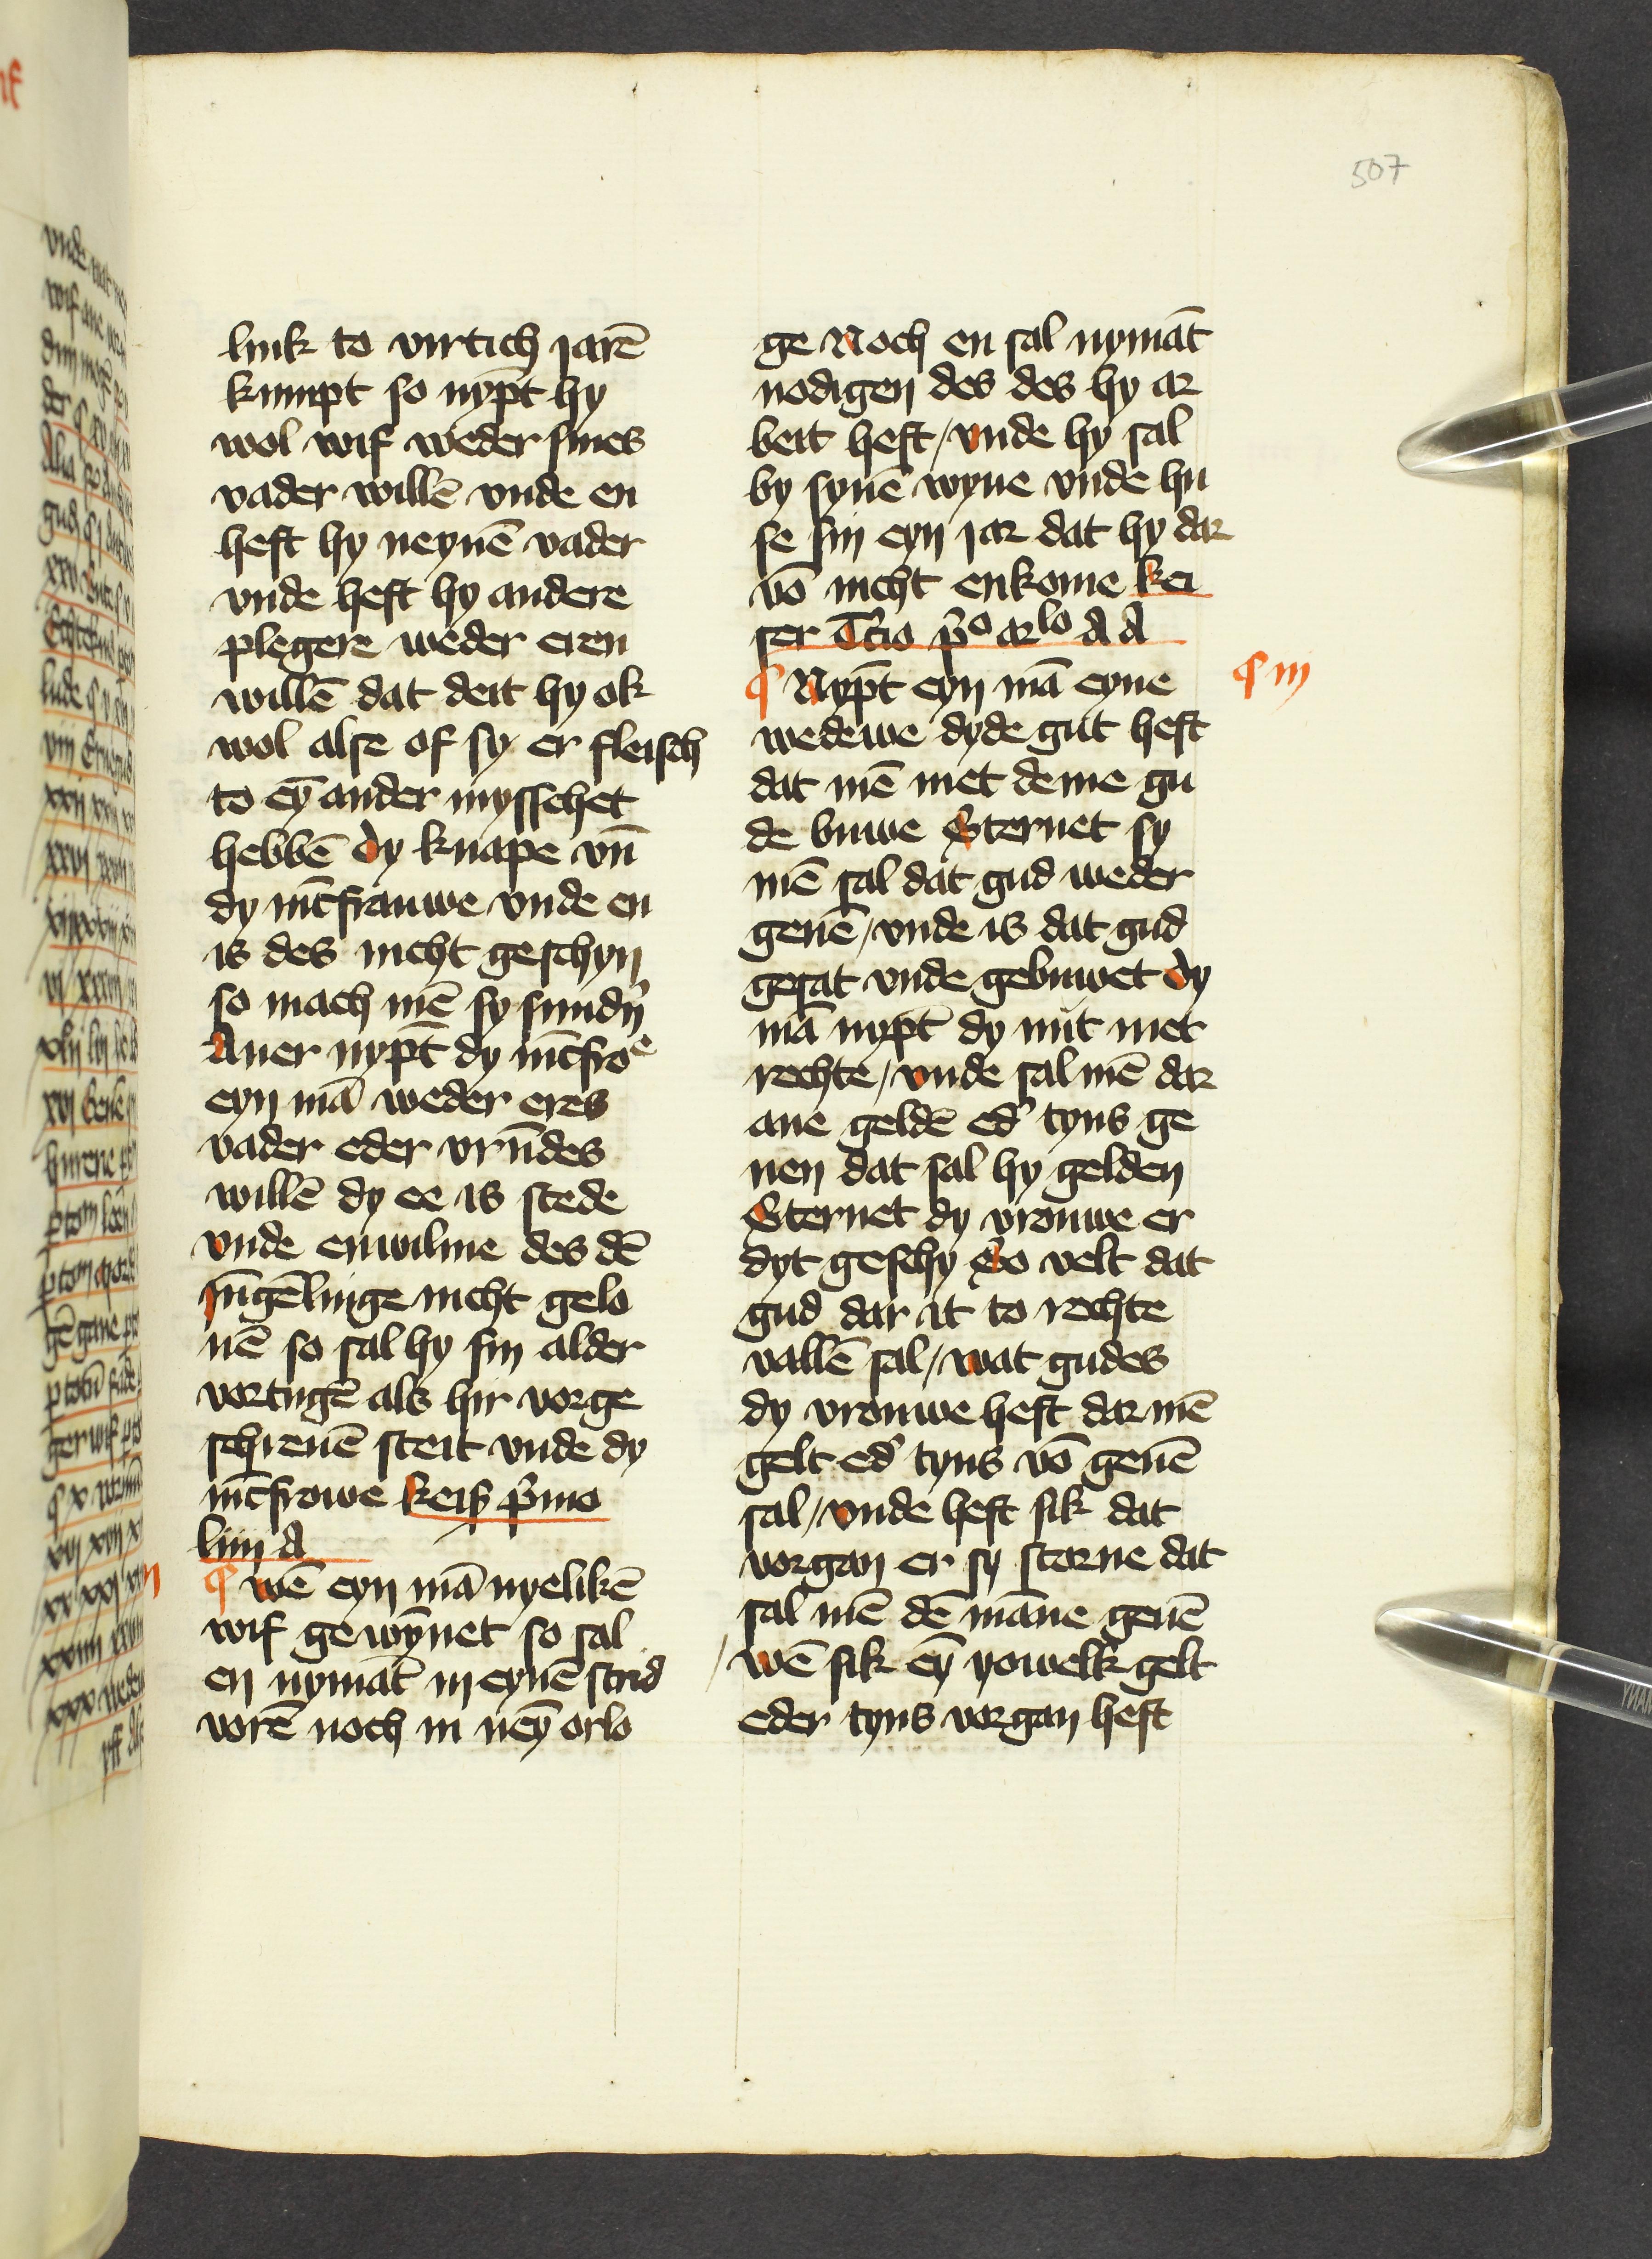 507
link to virtich jarē
kumpt so nỹpt hy
wol wif weder sines
vader willē vnde en
heft hy neynē vader
vnde heft hy andere
plegere weder eren
willē dat deit hy ok
wol alse of sy er fleisch
to eȳ ander mysschet
hebbē Dy knape vn̄
dy iūcfrauwe vnde en
is des nicht geschyn
so mach mē sy sundn̄
Auer nypt̄ dy iūcfroᵉ
eyn mā weder eres
vader eder vrūdes
willē dy ee is stede
vnde enwilme des dē
jūgēlinge nicht gelo
uē so sal hy sin alder
vortugē als hir vorge
schreuē steit vnde dy
iūcfrowe keiſ p̄mo
liiij A
¶ wē eyn mā nyelikē
wif gewȳnet so sal
en nymāt in eynē strid
vorē noch in neȳ orlo
ge Noch en sal nymāt
nodigen des des hy ar
beit heft / vnde hy sal
by synē wyue vnde hu
se sin eyn jar dat hy dar
vō nicht enkome kei
ser Tc̄io p̄o arlo A A
¶ Nypt̄ eyn mā eyne
¶ iij
wedewe dyde gut heft
dat mē met deme gu
de buwe Sternet sy
mē sal dat gud weder
geuē / vnde is dat gud
gesat vnde gebuwet Dy
mā nypt̄ dy nut met
rechte / vnde sal mē dar
ane geldē ed' tyns ge
uen dat sal hy gelden
Sternet dy vrouwe er
dyt geschy So velt dat
gud dar it to rechte
vallē sal / wat gudes
dy vrouwe heft dar mē
gelt ed' tyns vō geuē
sal / vnde heft sik dat
vorgan er sy storue dat
sal mē dē māne geuē
/ wē sik eȳ yowelk gelt
eder tyns vorgan heft